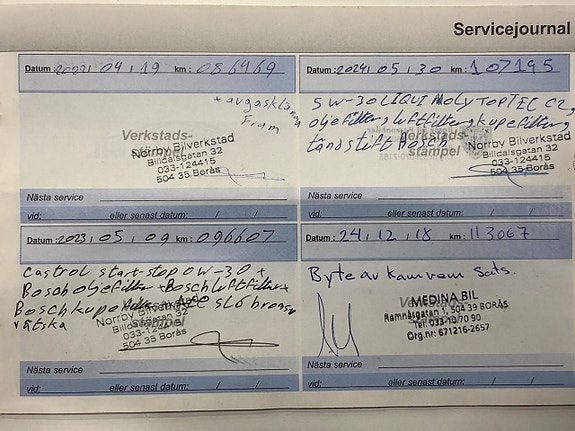 Servicejournal
Datum: 2022, 04, 19 km: 086969
+ avgasklämma
Fram
Verkstads-
stämpel
Norrby Bilverkstad
Billdalsgatan 32
033-124415
504 35 Borås
Nästa service
vid: eller senast datum: / /
Datum: 2024, 05, 30 km: 107195
5W-30 LIQUI MOLY TOPTEC C2,
oljefilter, luftfilter, kupefilter,
tändstift Bosch
Verkstads-
stämpel
Norrby Bilverkstad
Billdalsgatan 32
033-124415
504 35 Borås
Nästa service
vid: eller senast datum: / /
Datum: 2023, 05, 09 km: 096607
Castrol start-stop 0W-30 +
Bosch oljefilter + Bosch luftfilter +
Bosch kupefilter slå bromsv
vätska
Norrby Bilverkstad
Billdalsgatan 32
033-124415
504 35 Borås
Nästa service
vid: eller senast datum: / /
Datum: 24, 12, 18 km: 113067
Byte av kamrem sats.
Verkstads-
stämpel
MEDINA BIL
Ramnåsgatan 1, 504 39 BORÅS
Tel: 033-10 70 90
Org.nr: 671216-2657
Nästa service
vid: eller senast datum: / /